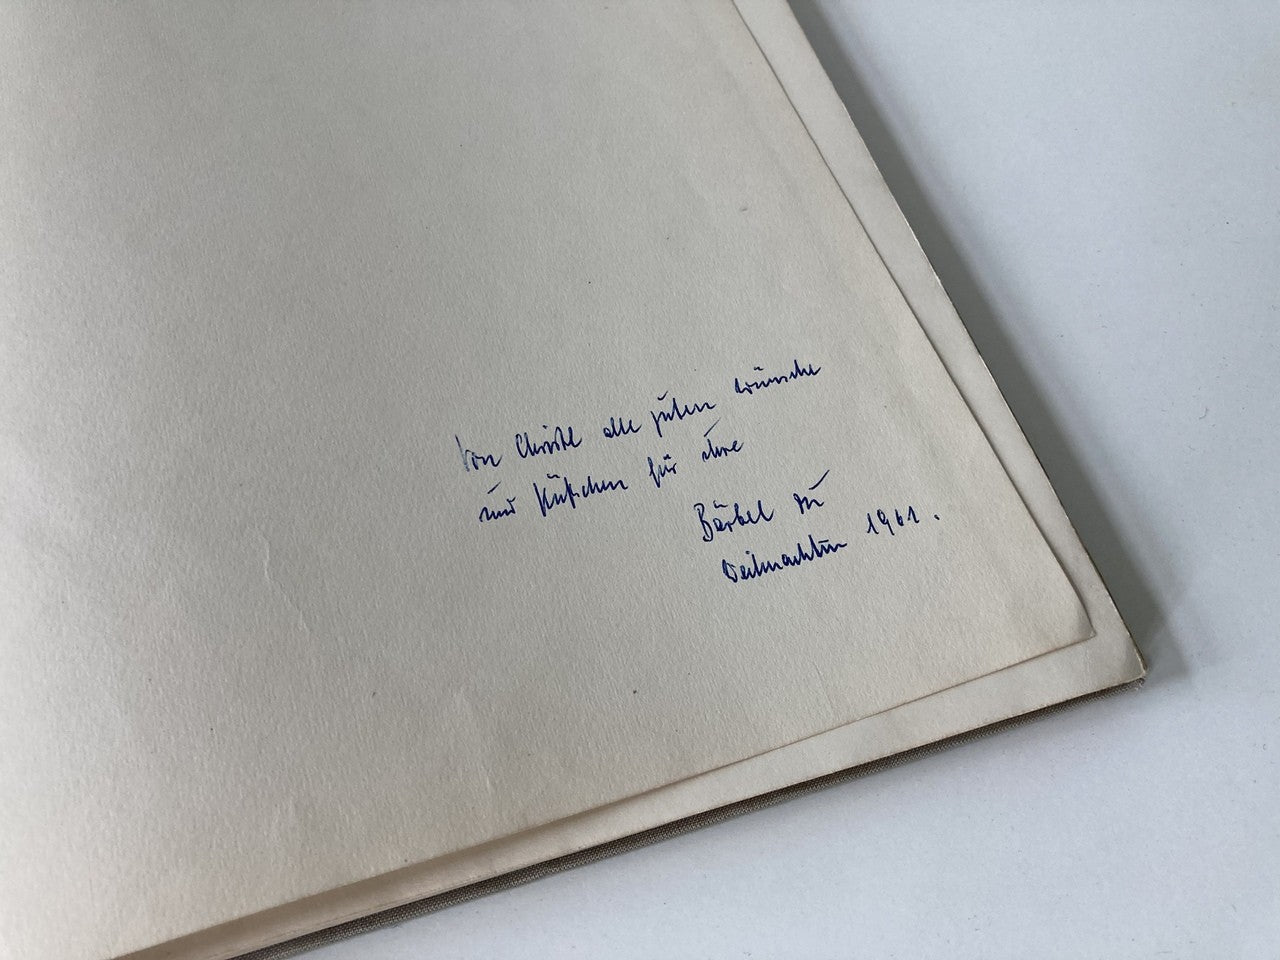 Von Christl alle guten Wünsche
und Küßchen für ihre
Bärbel zu
Weihnachten 1961.